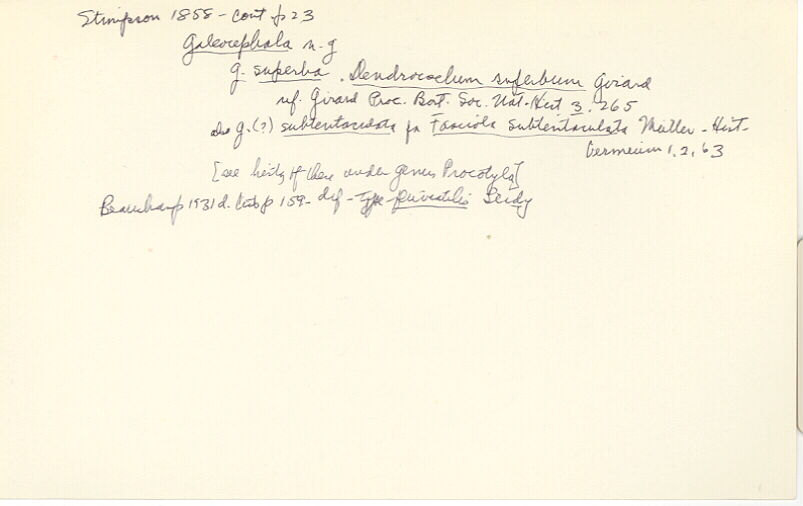 Stimpson 1858 - cont p 23
Galeocephala n.g
g. superba . Dendrocoelum superbum Girard
ref. Girard Proc. Bost. Soc. Nat. Hist 3. 265
also g. (?) subtentaculata for Fasciola subtentaculata Müller - Hist-
Vermium 1, 2, 63
[see history of these under genus Procotyla]
Beauchamp 1931 d. p 159 - def - type fluviatilis Leidy